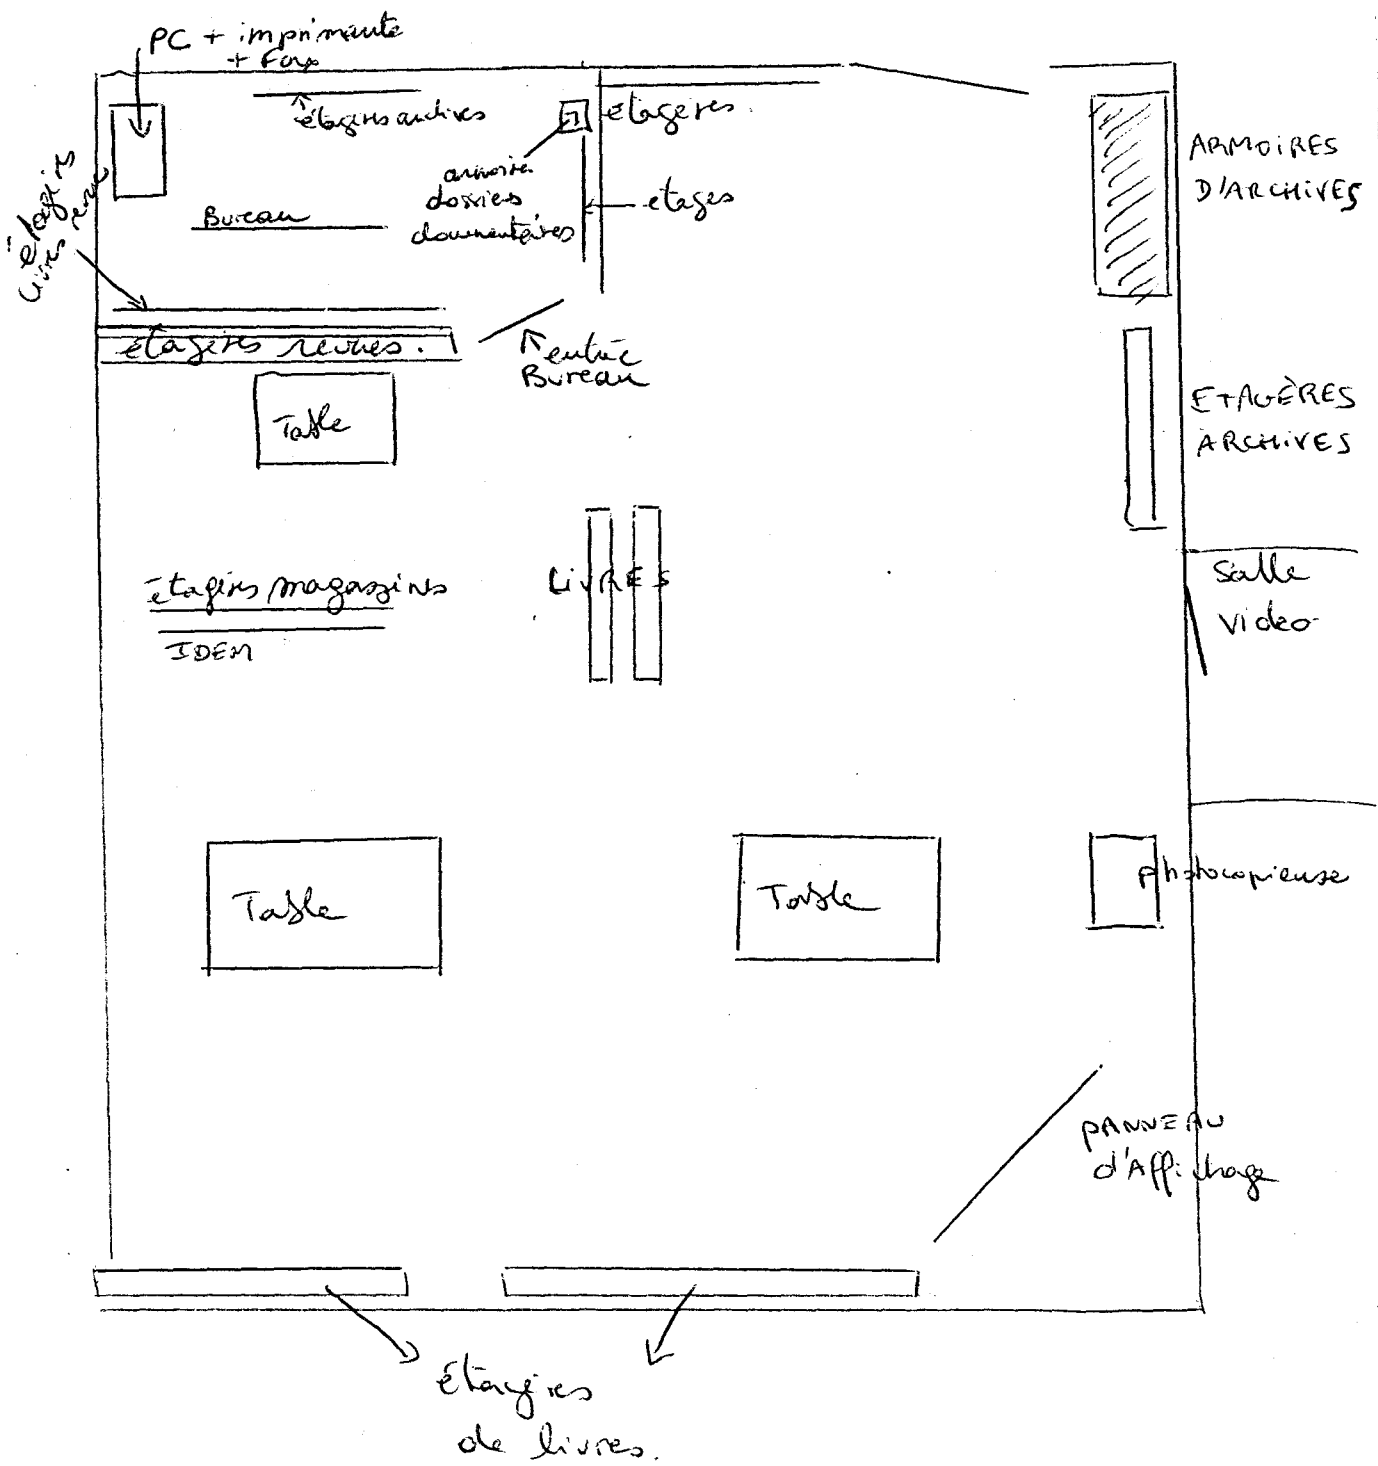 PC + imprimante
+ Fax
étagères archives
étagères
armoire
dossiers
documentaires
etages
Bureau
étagères
livres
étagères revues.
entrée
Bureau
Table
ARMOIRES
D'ARCHIVES
ETAGÈRES
ARCHIVES
étagères magazines
IDEM
LIVRES
Salle
Video
Table
Table
photocopieuse
PANNEAU
d'Affichage
étagères
de livres.